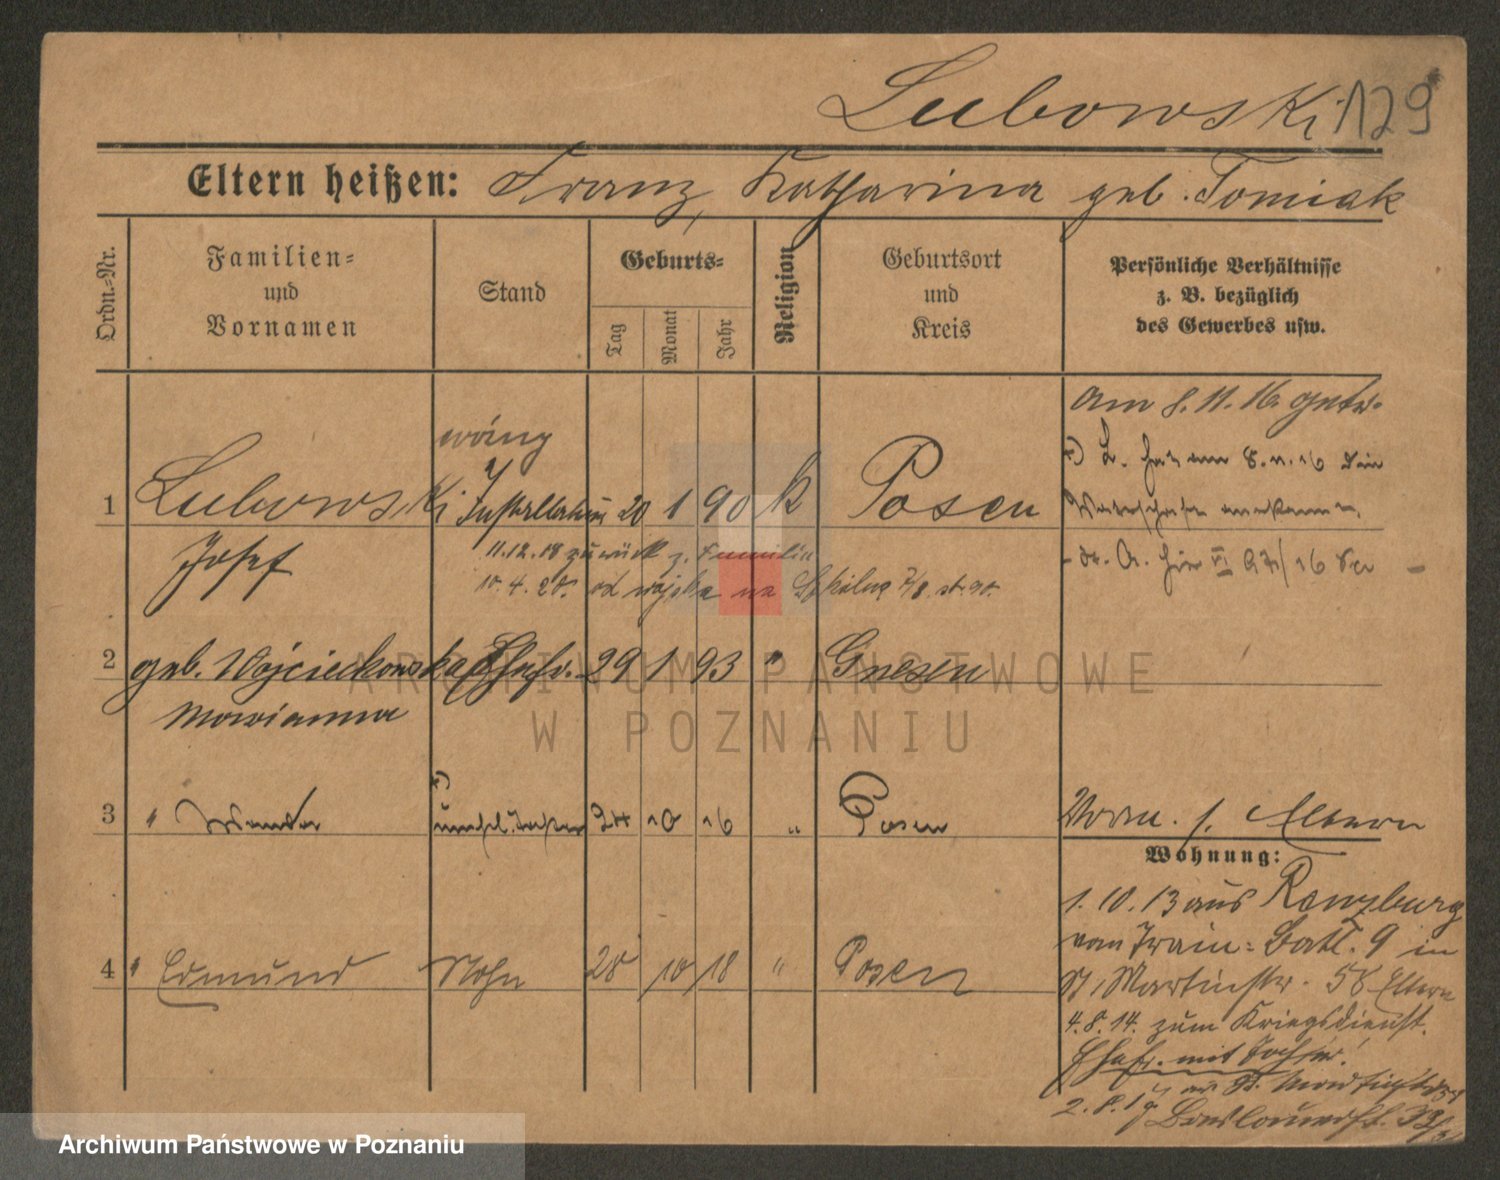 Lubowski 129
Eltern heißen: Franz, Katharina geb. Tomiak
Ordn.-Nr.
Familien-
und
Vornamen
Stand
Geburts-
Tag
Monat
Jahr
Religion
Geburtsort
und
Kreis
Persönliche Verhältnisse
z. B. bezüglich
des Gewerbes usw.
am 8.11.16. getr.
1 Lubowski Installateur 20 1 90 k Posen
Josef
L. hat am 8.11.16 die
Vaterschaft anerkannt.
11.12.18 zurück z. Familie
10.4.20. od wojska na
2 geb. Wojciechowska Ehefr. 29 1 93 " Gnesen
Marianna
3 " Wanda unehl. Tochter 24 10 16 " Posen
Vorm. s. Eltern
Wohnung:
4 " Edmund Sohn 28 10 18 " Posen
1.10.13 aus Renzburg
vom Train-Batl. 9 in
St. Martinstr. 58 Eltern
4.8.14. zum Kriegsdienst.
Ehefr. mit Tochter!
2.8.19 Breslauerst. 33/
ARCHIWUM PAŃSTWOWE
W POZNANIU
Archiwum Państwowe w Poznaniu